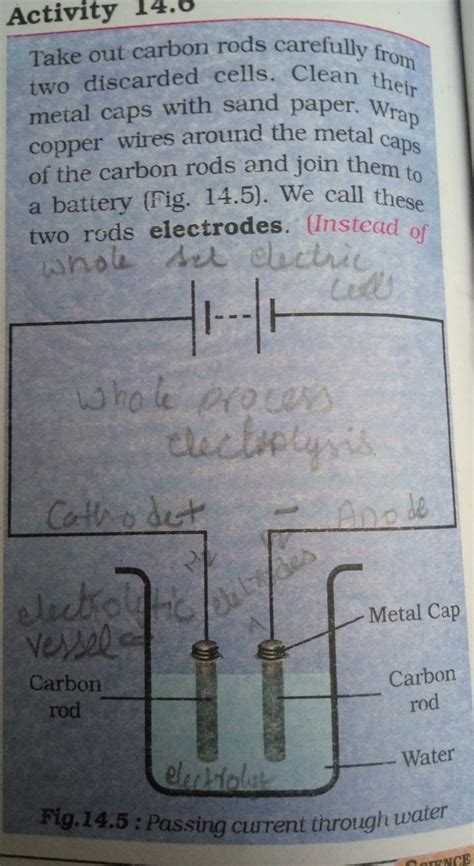 Activity 14.6
Take out carbon rods carefully from
two discarded cells. Clean their
metal caps with sand paper. Wrap
copper wires around the metal caps
of the carbon rods and join them to
a battery (Fig. 14.5). We call these
two rods electrodes. (Instead of
whole set electric
cell
whole process
electrolysis
Cathode +
- Anode
electrolytic
vessel
Metal Cap
Carbon
rod
Carbon
rod
Water
Fig.14.5 : Passing current through water
SCIENCE